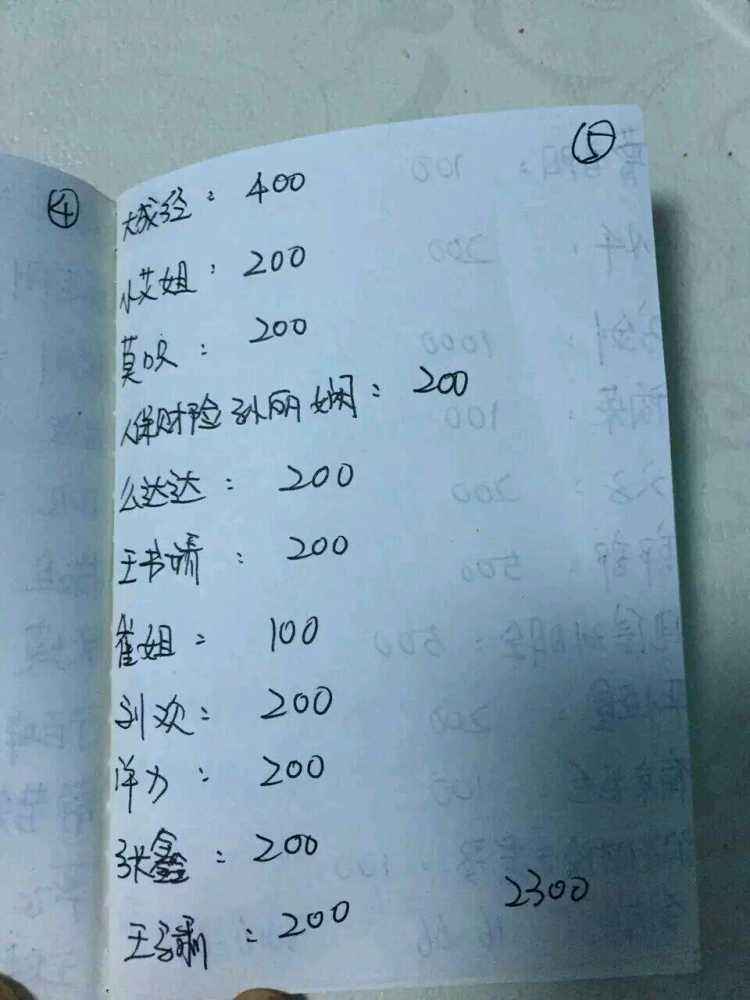 ④
⑤
大成经：400
小艾姐：200
莫呎：200
人保财险孙丽娴：200
么达达：200
王书婧：200
崔姐：100
刘欢：200
洋力：200
张鑫：200
王 ：200
2300